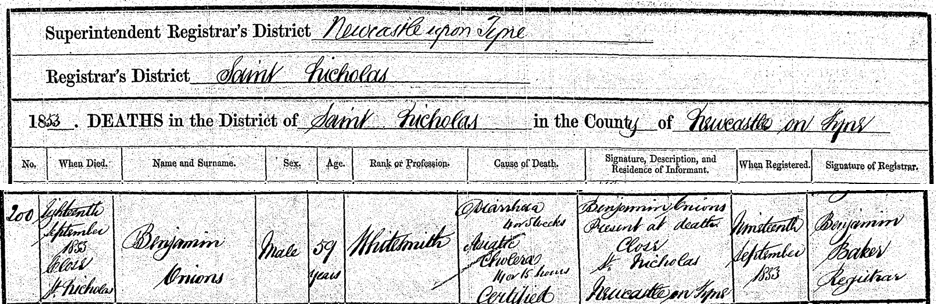 Superintendent Registrar's District Newcastle upon Tyne
Registrar's District Saint Nicholas
1853. DEATHS in the District of Saint Nicholas in the County of Newcastle on Tyne
No. When Died. Name and Surname. Sex. Age. Rank or Profession. Cause of Death. Signature, Description, and Residence of Informant. When Registered. Signature of Registrar.
200
Eighteenth
September
1853
Close
St. Nicholas
Benjamin
Onions
Male
59
years
Whitesmith
Diarrhoea
Asiatic
Cholera
14 or 15 hours
Certified
Benjamin Onions
Present at death
Close
St. Nicholas
Newcastle on Tyne
Nineteenth
September
1853
Benjamin
Baker
Registrar